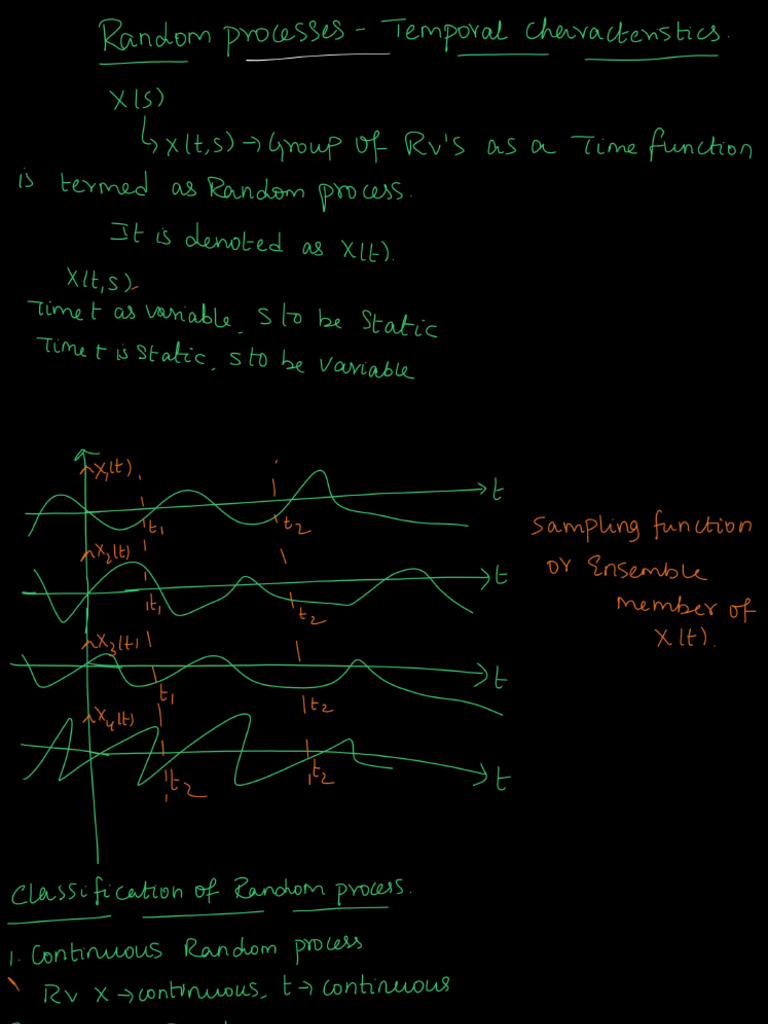 Random processes - Temporal characteristics.
X(s)
↳ X(t,s) → Group of RV's as a Time function
is termed as Random process.
It is denoted as X(t).
X(t,s)
Time t as variable, s to be static
Time t is static, s to be variable
X1(t)
t
t1
t2
X2(t)
t
t1
t2
X3(t)
t
t1
t2
X4(t)
t
t2
t2
Sampling function
or Ensemble
member of
X(t).
Classification of Random process.
1. Continuous Random process
RV X → continuous, t → continuous